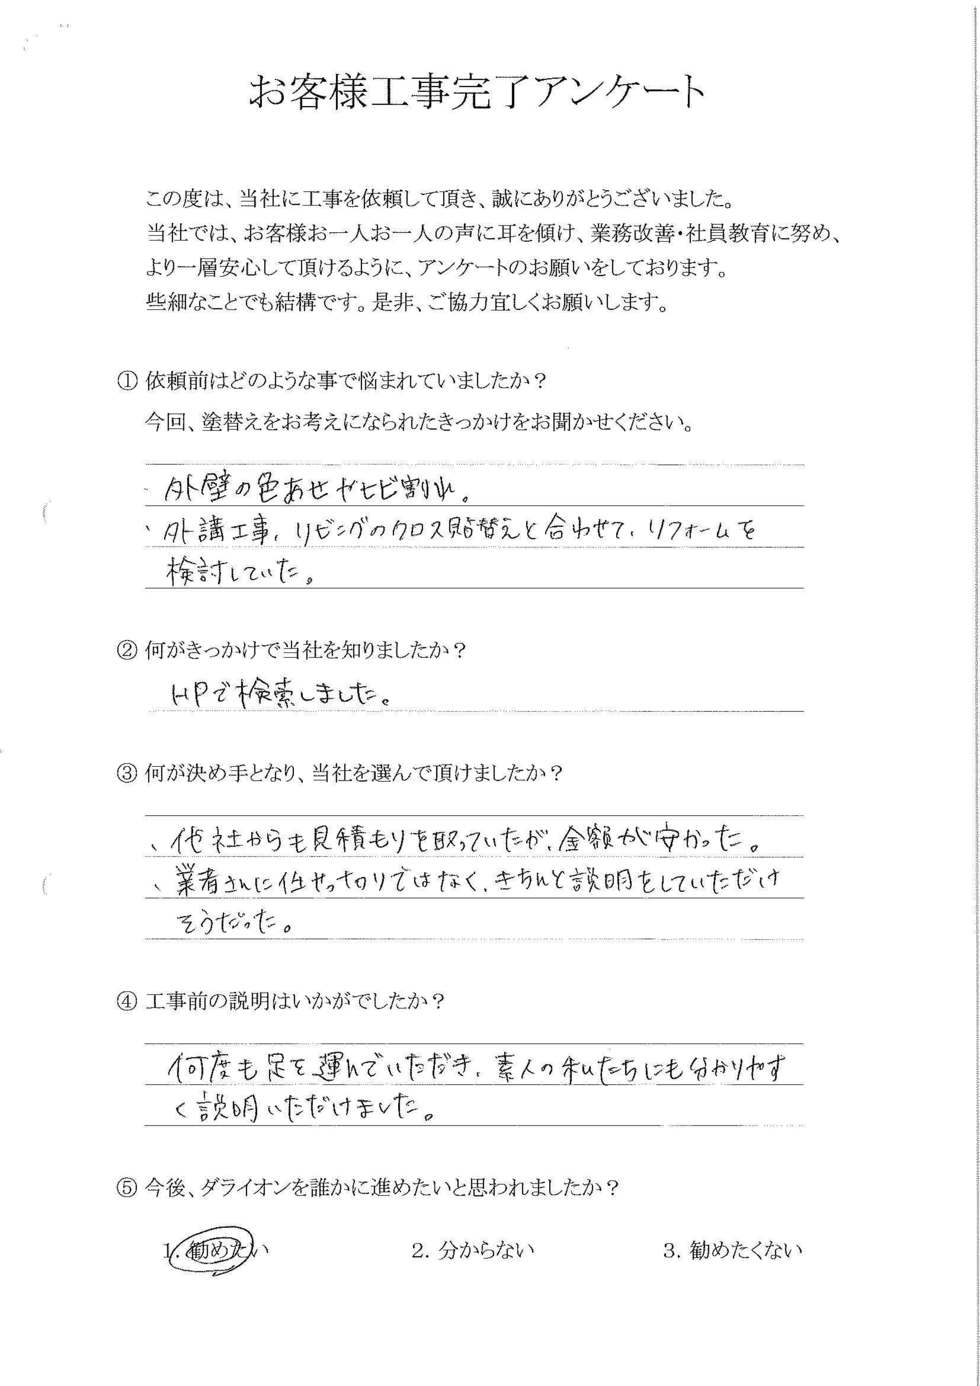 お客様工事完了アンケート
この度は、当社に工事を依頼して頂き、誠にありがとうございました。
当社では、お客様お一人お一人の声に耳を傾け、業務改善・社員教育に努め、
より一層安心して頂けるように、アンケートのお願いをしております。
些細なことでも結構です。是非、ご協力宜しくお願いします。
① 依頼前はどのような事で悩まれていましたか？
今回、塗替えをお考えになられたきっかけをお聞かせください。
、外壁の色あせやヒビ割れ。
、外講工事、リビングのクロス貼替えと合わせて、リフォームを
検討していた。
② 何がきっかけで当社を知りましたか？
HPで検索しました。
③ 何が決め手となり、当社を選んで頂けましたか？
、他社からも見積もりを取っていたが、金額が安かった。
、業者さんに任せっ切りではなく、きちんと説明をしていただけ
そうだった。
④ 工事前の説明はいかがでしたか？
何度も足を運んでいただき、素人の私たちにも分かりやす
く説明いただけました。
⑤ 今後、ダライオンを誰かに進めたいと思われましたか？
1. 勧めたい 2. 分からない 3. 勧めたくない